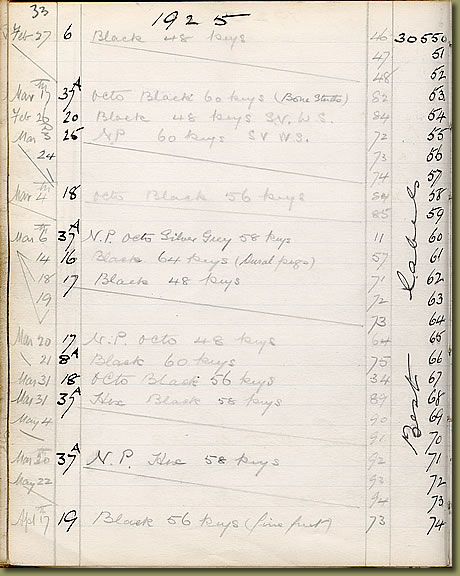 33 1925
Feb 27 6 Black 48 keys 46 30550
47 51
48 52
Mar 17th 37A Octo Black 60 keys (Bone Studs) 82 53
Feb 26 20 Black 48 keys S.V. W.S. 84 54
Mar 3 25 NP 60 keys SV W.S. 72 55
24 73 56
74 57
Mar 4th 18 Octo Black 56 keys 84 58
85 59
Mar 6th 37A N.P. Octo Silver Grey 58 keys 11 60
14 16 Black 64 keys (Dural pegs) 57 61
18 17 Black 48 keys 71 62
19 72 63
73 64
Mar 20 17 N.P. Octo 48 keys 64 65
21 8A Black 60 keys 75 66
Mar 31 18 Octo Black 56 keys 34 67
Mar 31 37A Hex Black 58 keys 89 68
May 4 90 69
91 70
Mar 30 37A N.P. Hex 58 keys 92 71
May 22 93 72
94 73
Apl 17 19 Black 56 keys (fine fret) 73 74
Best Labels